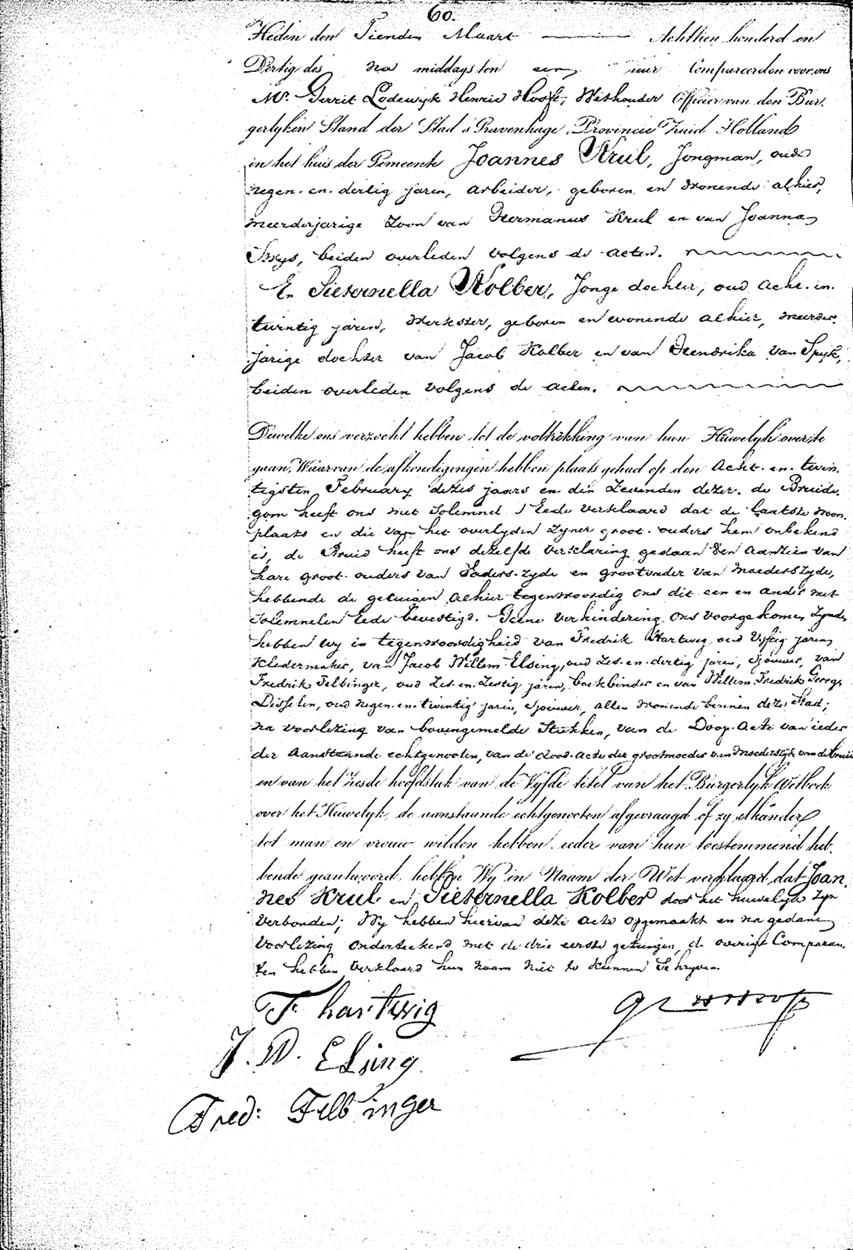 60.
Heden den Tienden Maart Achttien honderd en
Dertig des na middags ten een uur Compareerden voor ons
Mr. Gerrit Lodewyk Henric Hooft, Wethouder Officier van den Bur-
gerlyken Stand der Stad s Gravenhage, Provincie Zuid Holland
in het huis der Gemeente Joannes Krul, Jongman, oud
negen-en-dertig jaren, arbeider, geboren en wonende alhier,
meerderjarige zoon van Hermanus Krul en van Joanna
Swys, beiden overleden volgens de acten.
En Pieternella Kolber, Jonge dochter, oud acht-in-
twintig jaren, werkster, geboren en wonende alhier, meerder-
jarige dochter van Jacob Kolber en van Hendrika van Spyk,
beiden overleden volgens de acten.
Dewelke ons verzocht hebben tot de voltrekking van hun Huwelyk over te
gaan, Waarvan de afkondigingen hebben plaats gehad op den Acht-en-twin-
tigsten February dezes jaars en den Zevenden dezer. de Bruide-
gom heeft ons met Solemnel Eede verklaard dat de laatste woon-
plaats en die van het overlyden zyner groot-ouders hem onbekend
is, de Bruid heeft ons dezelfde verklaring gedaan ten aanzien van
hare groot-ouders van Vaders-zyde en grootvader van moeders zyde,
hebbende de getuigen alhier tegenwoordig ons dit een en ander met
Solemnelen Eede bevestigd. Geene verhindering ons voorgekomen zynde
hebben wy in tegenwoordigheid van Fredrik Hartweg, oud vyftig jaren,
Kledermaker, van Jacob Willem Elsing, oud Zes-en-dertig jaren, Sjouwer, van
Fredrik Felbinger, oud Zes-en-Zestig jaren, boekbinder en van Willem Fredrik George
Disselen, oud negen-en-twintig jaren, Sjouwer, allen wonende binnen deze Stad;
na voorlezing van bovengemelde Stukken, van de Doop-Acte van ieder
der Aanstaande echtgenooten, van de dood-acte der grootmoeder van Moederslyde van de bruid
en van het zesde hoofdstuk van de Vyfde titel van het Burgerlyk Wetboek
over het Huwelyk, de aanstaande echtgenooten afgevraagd of zy elkander
tot man en vrouw wilden hebben. ieder van hun toestemmend heb-
bende geantwoord, hebben Wy in Naam der Wet verklaard, dat Joan-
nes Krul en Pieternella Kolber door het huwelyk zyn
verbonden; Wy hebben hiervan deze acte opgemaakt en na gedane
Voorlezing onderteekend met de drie eerste getuigen, de overige Comparan-
ten hebben verklaard hun naam niet te kunnen Schryven.
F hartwig
J. W. Elsing
Fred: Felbinger